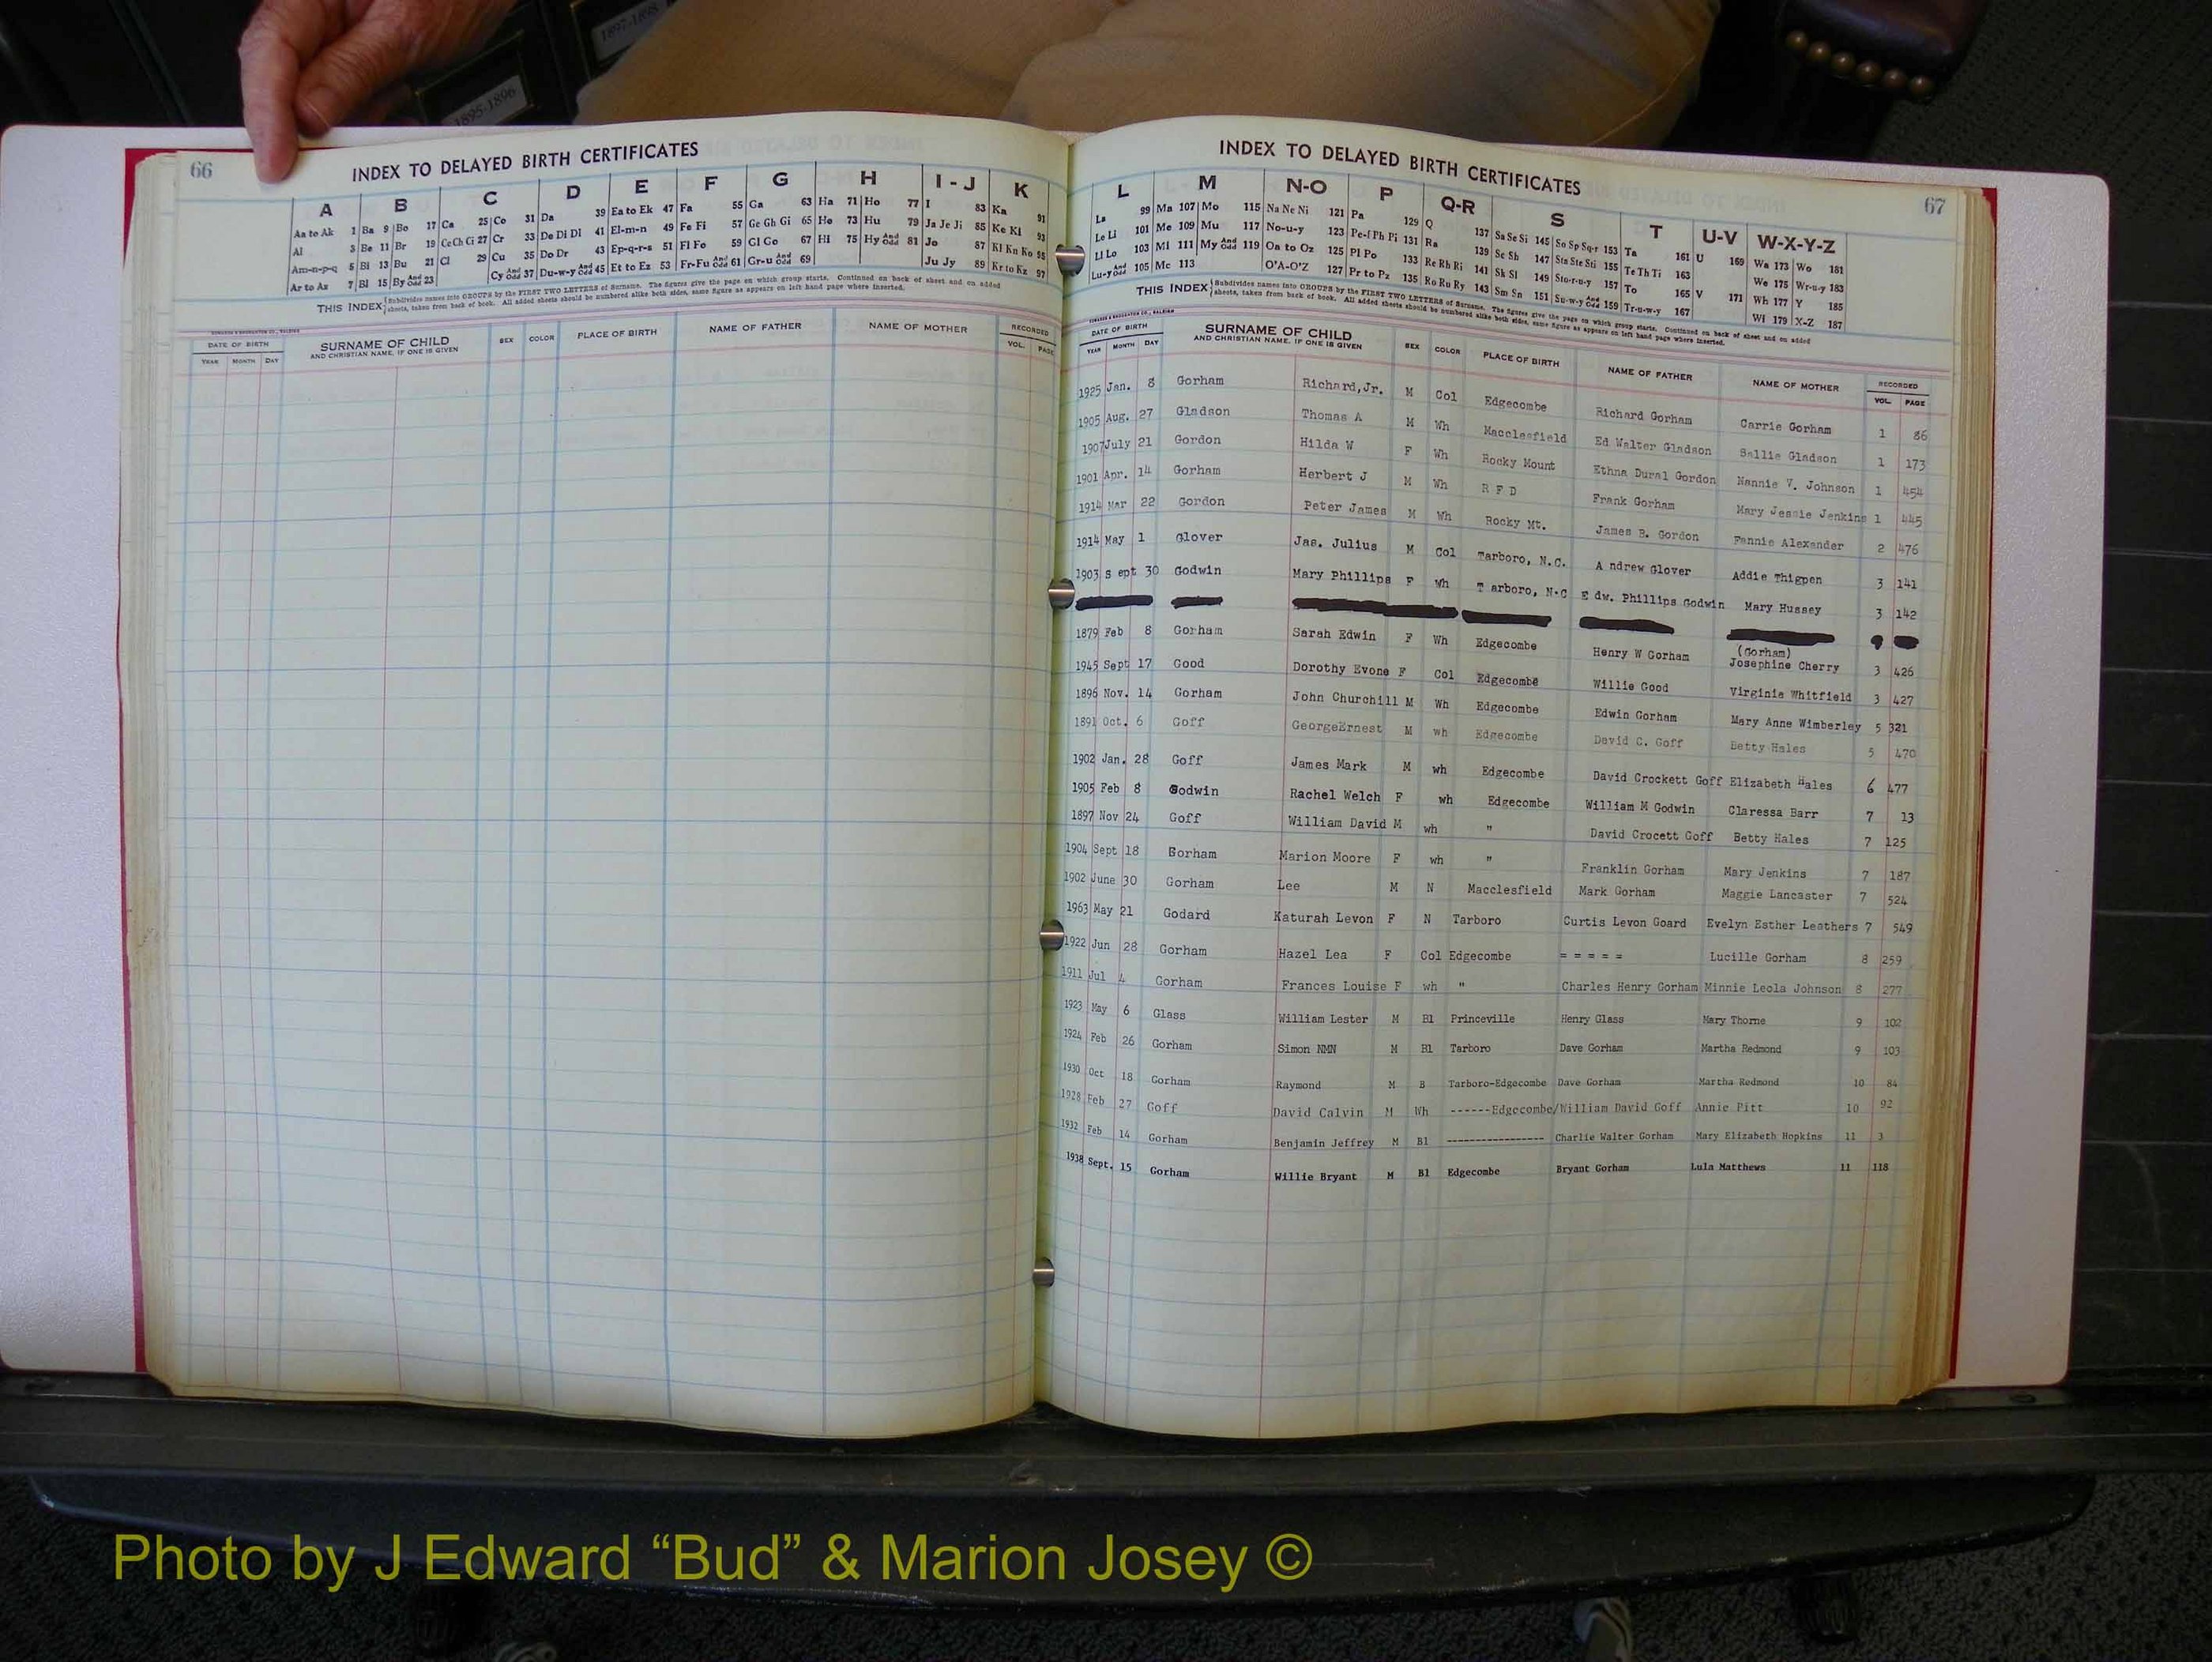 1897-1898
1895-1896
66
INDEX TO DELAYED BIRTH CERTIFICATES
A B C D E F G H I - J K
Aa to Ak 1 Ba 9 Bo 17 Ca 25 Co 31 Da 39 Ea to Ek 47 Fa 55 Ga 63 Ha 71 Ho 77 I 83 Ka 91
Al 3 Be 11 Br 19 Ce Ch Ci 27 Cr 33 De Di Dl 41 El-m-n 49 Fe Fi 57 Ge Gh Gi 65 He 73 Hu 79 Ja Je Ji 85 Ke Ki 93
Am-n-p-q 5 Bi 13 Bu 21 Cl 29 Cu 35 Do Dr 43 Ep-q-r-s 51 Fl Fo 59 Gl Go 67 Hi 75 Hy And Odd 81 Jo 87 Kl Kn Ko 95
Ar to Az 7 Bl 15 By And Odd 23 Cy And Odd 37 Du-w-y And Odd 45 Et to Ez 53 Fr-Fu And Odd 61 Gr-u And Odd 69 Ju Jy 89 Kr to Kz 97
THIS INDEX Subdivides names into GROUPS by the FIRST TWO LETTERS of Surname. The figures give the page on which group starts. Continued on back of sheet and on added
sheets, taken from back of book. All added sheets should be numbered alike both sides, same figure as appears on left hand page where inserted.
EDWARDS & BROUGHTON CO., RALEIGH
DATE OF BIRTH SURNAME OF CHILD AND CHRISTIAN NAME, IF ONE IS GIVEN SEX COLOR PLACE OF BIRTH NAME OF FATHER NAME OF MOTHER RECORDED
YEAR MONTH DAY VOL. PAGE
67
INDEX TO DELAYED BIRTH CERTIFICATES
L M N-O P Q-R S T U-V W-X-Y-Z
La 99 Ma 107 Mo 115 Na Ne Ni 121 Pa 129 Q 137 Sa Se Si 145 So Sp Sq-r 153 Ta 161 U 169 Wa 173 Wo 181
Le Li 101 Me 109 Mu 117 No-u-y 123 Pe-f Ph Pi 131 Ra 139 Sc Sh 147 Sta Ste Sti 155 Te Th Ti 163 We 175 Wr-u-y 183
Ll Lo 103 Mi 111 My And Odd 119 Oa to Oz 125 Pl Po 133 Re Rh Ri 141 Sk Sl 149 Sto-r-u-y 157 To 165 V 171 Wh 177 Y 185
Lu-y And Odd 105 Mc 113 O'A-O'Z 127 Pr to Pz 135 Ro Ru Ry 143 Sm Sn 151 Su-w-y And Odd 159 Tr-u-w-y 167 Wi 179 X-Z 187
THIS INDEX Subdivides names into GROUPS by the FIRST TWO LETTERS of Surname. The figures give the page on which group starts. Continued on back of sheet and on added
sheets, taken from back of book. All added sheets should be numbered alike both sides, same figure as appears on left hand page where inserted.
EDWARDS & BROUGHTON CO., RALEIGH
DATE OF BIRTH SURNAME OF CHILD AND CHRISTIAN NAME, IF ONE IS GIVEN SEX COLOR PLACE OF BIRTH NAME OF FATHER NAME OF MOTHER RECORDED
YEAR MONTH DAY VOL. PAGE
1925 Jan. 8 Gorham Richard,Jr. M Col Edgecombe Richard Gorham Carrie Gorham 1 86
1905 Aug. 27 Gladson Thomas A M Wh Macclesfield Ed Walter Gladson Sallie Gladson 1 173
1907 July 21 Gordon Hilda W F Wh Rocky Mount Ethna Dural Gordon Nannie V. Johnson 1 454
1901 Apr. 14 Gorham Herbert J M Wh R F D Frank Gorham Mary Jessie Jenkins 1 445
1914 Mar 22 Gordon Peter James M Wh Rocky Mt. James B. Gordon Fannie Alexander 2 476
1914 May 1 Glover Jas. Julius M Col Tarboro, N.C. A ndrew Glover Addie Thigpen 3 141
1903 s ept 30 Godwin Mary Phillips F Wh T arboro, N.C E dw. Phillips Godwin Mary Hussey 3 142
1879 Feb 8 Gorham Sarah Edwin F Wh Edgecombe Henry W Gorham (Gorham) Josephine Cherry 3 426
1945 Sept 17 Good Dorothy Evone F Col Edgecombe Willie Good Virginia Whitfield 3 427
1896 Nov. 14 Gorham John Churchill M Wh Edgecombe Edwin Gorham Mary Anne Wimberley 5 321
1891 Oct. 6 Goff GeorgeErnest M wh Edgecombe David C. Goff Betty Hales 5 470
1902 Jan. 28 Goff James Mark M wh Edgecombe David Crockett Goff Elizabeth Hales 6 477
1905 Feb 8 Godwin Rachel Welch F wh Edgecombe William M Godwin Claressa Barr 7 13
1897 Nov 24 Goff William David M wh " David Crocett Goff Betty Hales 7 125
1904 Sept 18 Gorham Marion Moore F wh " Franklin Gorham Mary Jenkins 7 187
1902 June 30 Gorham Lee M N Macclesfield Mark Gorham Maggie Lancaster 7 524
1963 May 21 Godard Katurah Levon F N Tarboro Curtis Levon Goard Evelyn Esther Leathers 7 549
1922 Jun 28 Gorham Hazel Lea F Col Edgecombe = = = = = Lucille Gorham 8 259
1911 Jul 4 Gorham Frances Louise F wh " Charles Henry Gorham Minnie Leola Johnson 8 277
1923 May 6 Glass William Lester M Bl Princeville Henry Glass Mary Thorne 9 102
1924 Feb 26 Gorham Simon NMN M Bl Tarboro Dave Gorham Martha Redmond 9 103
1930 Oct 18 Gorham Raymond M B Tarboro-Edgecombe Dave Gorham Martha Redmond 10 84
1928 Feb 27 Goff David Calvin M Wh ------Edgecombe/William David Goff Annie Pitt 10 92
1932 Feb 14 Gorham Benjamin Jeffrey M Bl ----------------- Charlie Walter Gorham Mary Elizabeth Hopkins 11 3
1938 Sept. 15 Gorham Willie Bryant M Bl Edgecombe Bryant Gorham Lula Matthews 11 118
Photo by J Edward “Bud” & Marion Josey ©